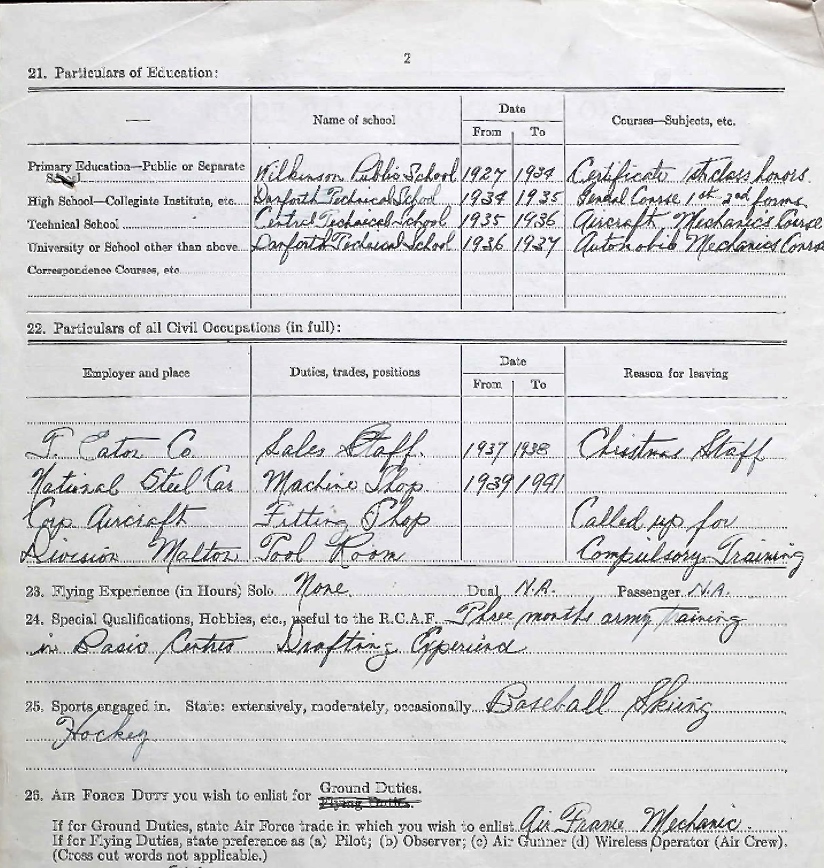 2
21. Particulars of Education:
— Name of school Date Courses—Subjects, etc.
From To
Primary Education—Public or Separate
School Wilkinson Public School 1927 1934 Certificate 1st class honors
High School—Collegiate Institute, etc. Danforth Technical School 1934 1935 General Course 1st 2nd forms.
Technical School Central Technical School 1935 1936 Aircraft Mechanics Course
University or School other than above Danforth Technical School 1936 1937 Automobile Mechanics Course
Correspondence Courses, etc.
22. Particulars of all Civil Occupations (in full):
Employer and place Duties, trades, positions Date Reason for leaving
From To
T. Eaton Co Sales Staff. 1937 1938 Christmas Staff
National Steel Car Machine Shop 1939 1941
Corp Aircraft Fitting Shop Called up for
Division Malton Tool Room Compulsory Training
23. Flying Experience (in Hours) Solo None Dual N.A. Passenger N.A.
24. Special Qualifications, Hobbies, etc., useful to the R.C.A.F. Three months army training
in Basic Centres Drafting Experience
25. Sports engaged in. State: extensively, moderately, occasionally Baseball Skiing
Hockey
26. AIR FORCE DUTY you wish to enlist for Ground Duties.
Flying Duties.
If for Ground Duties, state Air Force trade in which you wish to enlist Air Frame Mechanic.
If for Flying Duties, state preference as (a) Pilot; (b) Observer; (c) Air Gunner (d) Wireless Operator (Air Crew).
(Cross out words not applicable.)